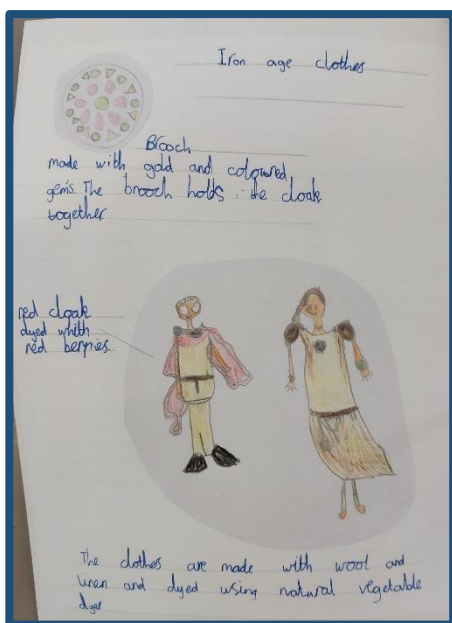 Iron age clothes
Brooch
made with gold and coloured
gems. The brooch holds the cloak
together
red cloak
dyed whith
red berries.
The clothes are made with wool and
linen and dyed using natural vegetable
dyes